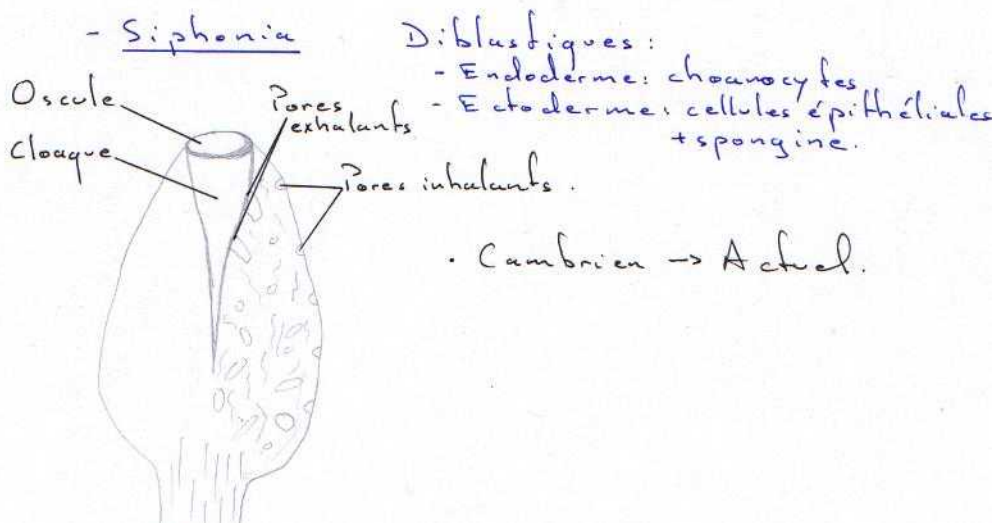 - Siphonia
Diblastiques:
- Endoderme: choanocytes
- Ectoderme: cellules épithéliales
+ spongine.
Oscule
Cloaque
Pores
exhalants
Pores inhalants.
• Cambrien -> Actuel.